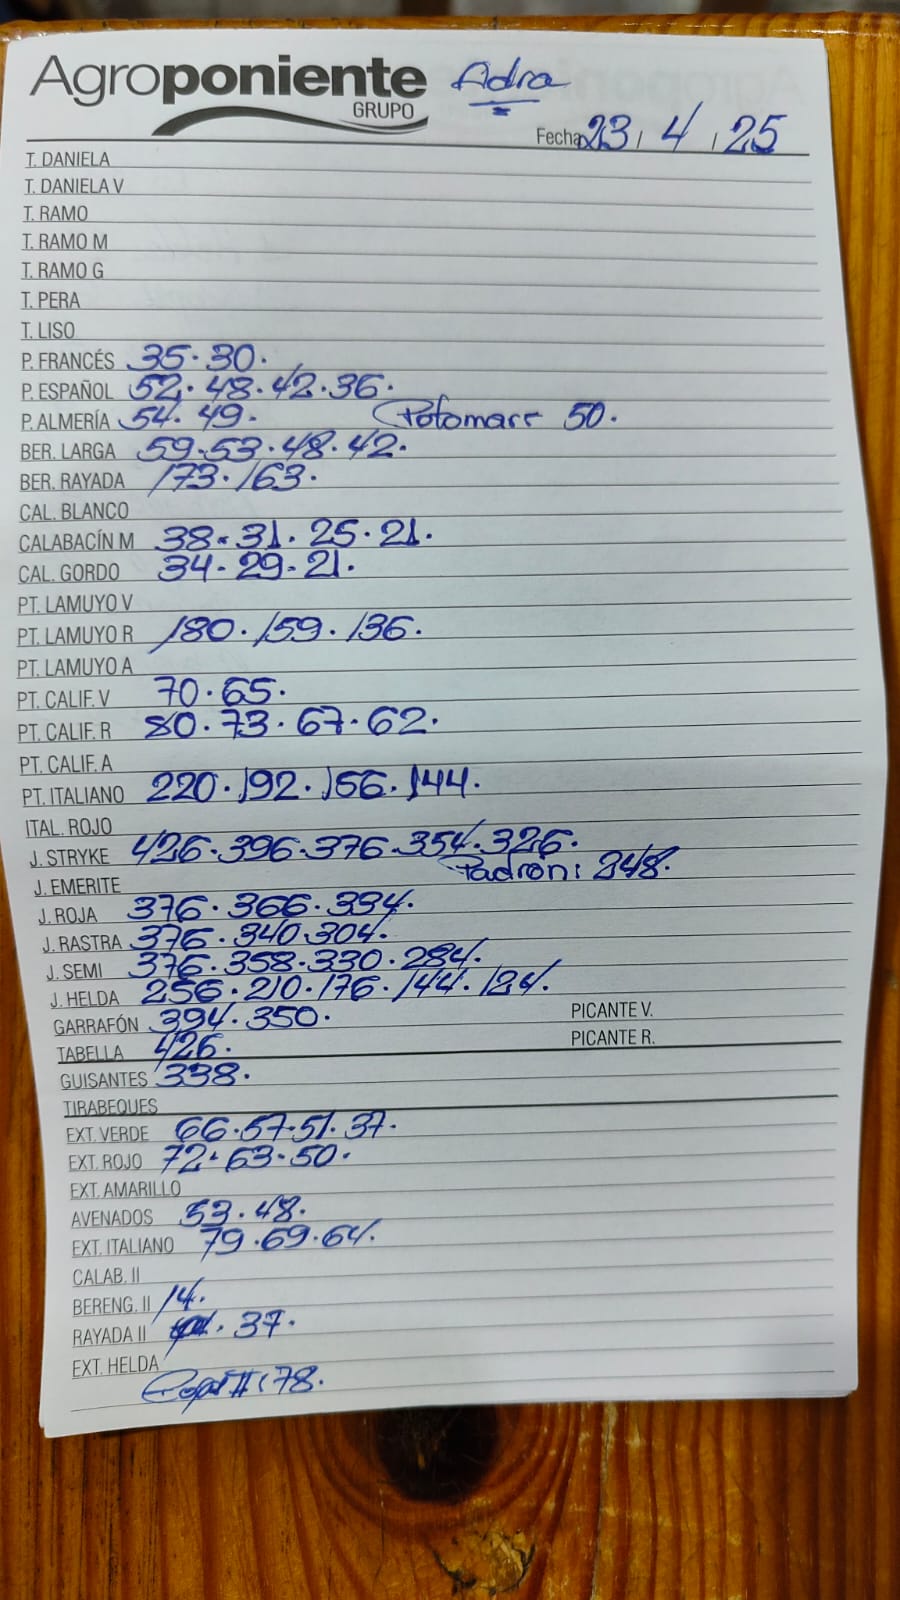 Agroponiente Adra
GRUPO
Fecha 23 / 4 / 25
T. DANIELA
T. DANIELA V
T. RAMO
T. RAMO M
T. RAMO G
T. PERA
T. LISO
P. FRANCÉS 35. 30.
P. ESPAÑOL 52. 48. 42. 36.
P. ALMERÍA 54. 49. Potomare 50.
BER. LARGA 59. 53. 48. 42.
BER. RAYADA 173. 163.
CAL. BLANCO
CALABACÍN M 38. 31. 25. 21.
CAL. GORDO 34. 29. 21.
PT. LAMUYO V
PT. LAMUYO R 180. 159. 136.
PT. LAMUYO A
PT. CALIF. V 70. 65.
PT. CALIF. R 80. 73. 67. 62.
PT. CALIF. A
PT. ITALIANO 220. 192. 144.
ITAL. ROJO
J. STRYKE 426. 396. 376. 354. 326.
Padron: 248.
J. EMERITE
J. ROJA 376. 366.
J. RASTRA 376. 340. 304.
J. SEMI 376. 358. 330. 284.
J. HELDA 256. 210. 176. 144. 124.
GARRAFÓN 394. 350. PICANTE V.
TABELLA 426. PICANTE R.
GUISANTES 338.
TIRABEQUES
EXT. VERDE 66. 57. 51. 37.
EXT. ROJO 72. 63. 50.
EXT. AMARILLO
AVENADOS 53. 48.
EXT. ITALIANO 79. 69. 64.
CALAB. II
BERENG. II 14.
RAYADA II 37.
EXT. HELDA
78.